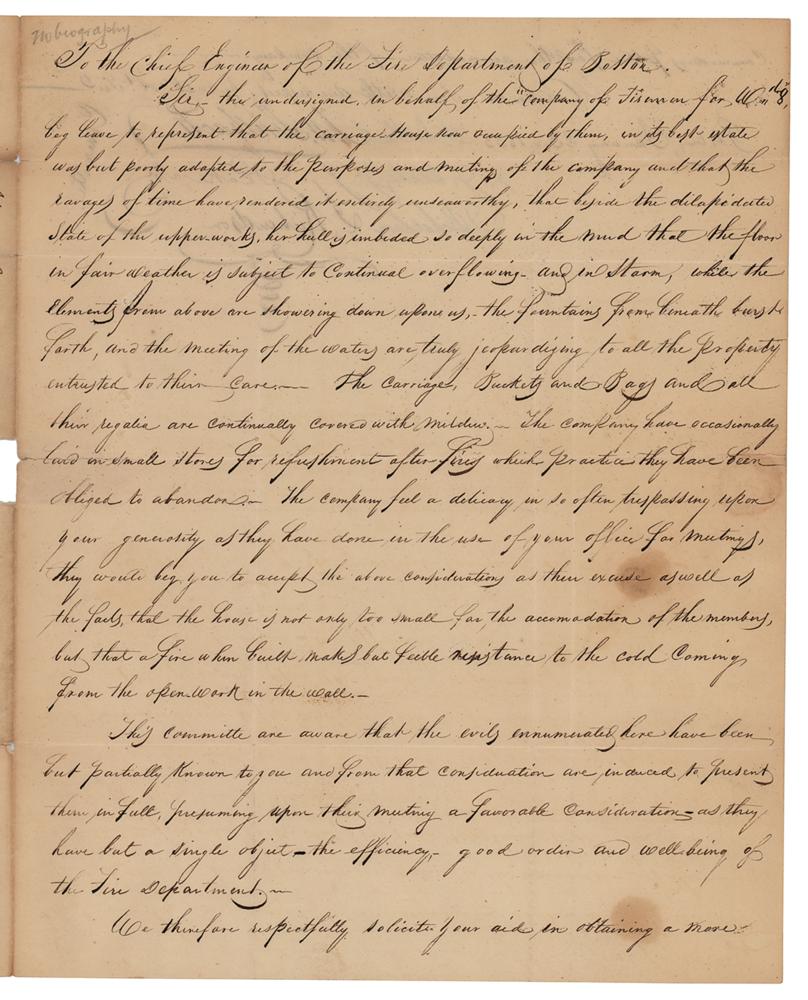 No biography
To the Chief Engineer of the Fire Department of Boston.
Sir,- the undersigned, in behalf of the "Company of Firemen for Wd 8,
beg leave to represent that the carriage-House now occupied by them, in its best estate
was but poorly adapted to the purposes and meeting of the company and that the
ravages of time have rendered it entirely unseaworthy, that beside the dilapidated
State of the upper-works, her hull is imbeded so deeply in the mud that the floor
in fair weather is subject to Continual overflowing- and in Storm, while the
Elements from above are showering down upone us,- the fountains from beneath burst
forth, and the meeting of the waters are truly jeopardizing to all the Property
entrusted to their care.- The Carriage, Buckets and Bags and all
their regalia are continually covered with Mildew.- The company have occasionally
laid in small stores for refreshment after fires which practice they have been
obliged to abandon.- The company feel a delicacy in so often trespassing upon
your generosity as they have done in the use of your office for meetings,
they would beg you to accept the above considerations as their excuse as well as
the facts, that the house is not only too small for the accomodation of the members,
but that a fire when built makes but feeble resistance to the cold Coming
from the open-work in the wall.-
This committe are aware that the evils ennumerated here have been
but partially Known to you and from that consideration are induced to present
them in full, presuming upon their meeting a favorable Consideration- as they
have but a single object- the efficiency,- good order and well-being of
the Fire Department.-
We therefore respectfully solicite your aid in obtaining a more